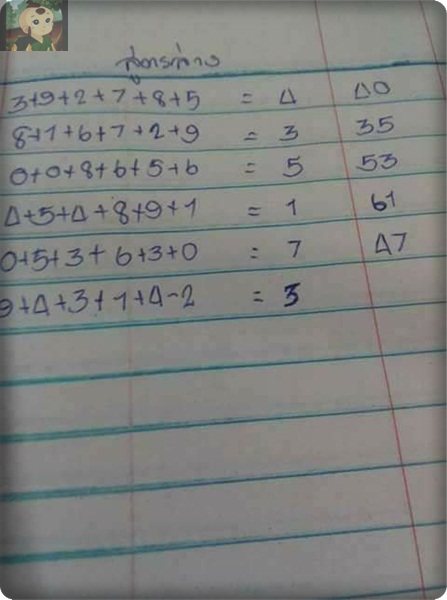 สูตรล่าง
3+9+2+7+8+5 = 4 40
8+1+6+7+2+9 = 3 35
0+0+8+6+5+6 = 5 53
4+5+4+8+9+1 = 1 61
0+5+3+6+3+0 = 7 47
9+4+3+1+4-2 = 3